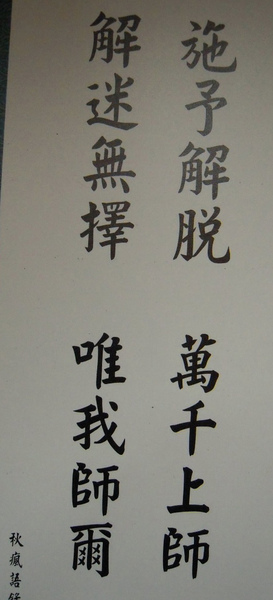 施予解脱 萬千上師
解迷無擇 唯我師爾
秋瘋語錄